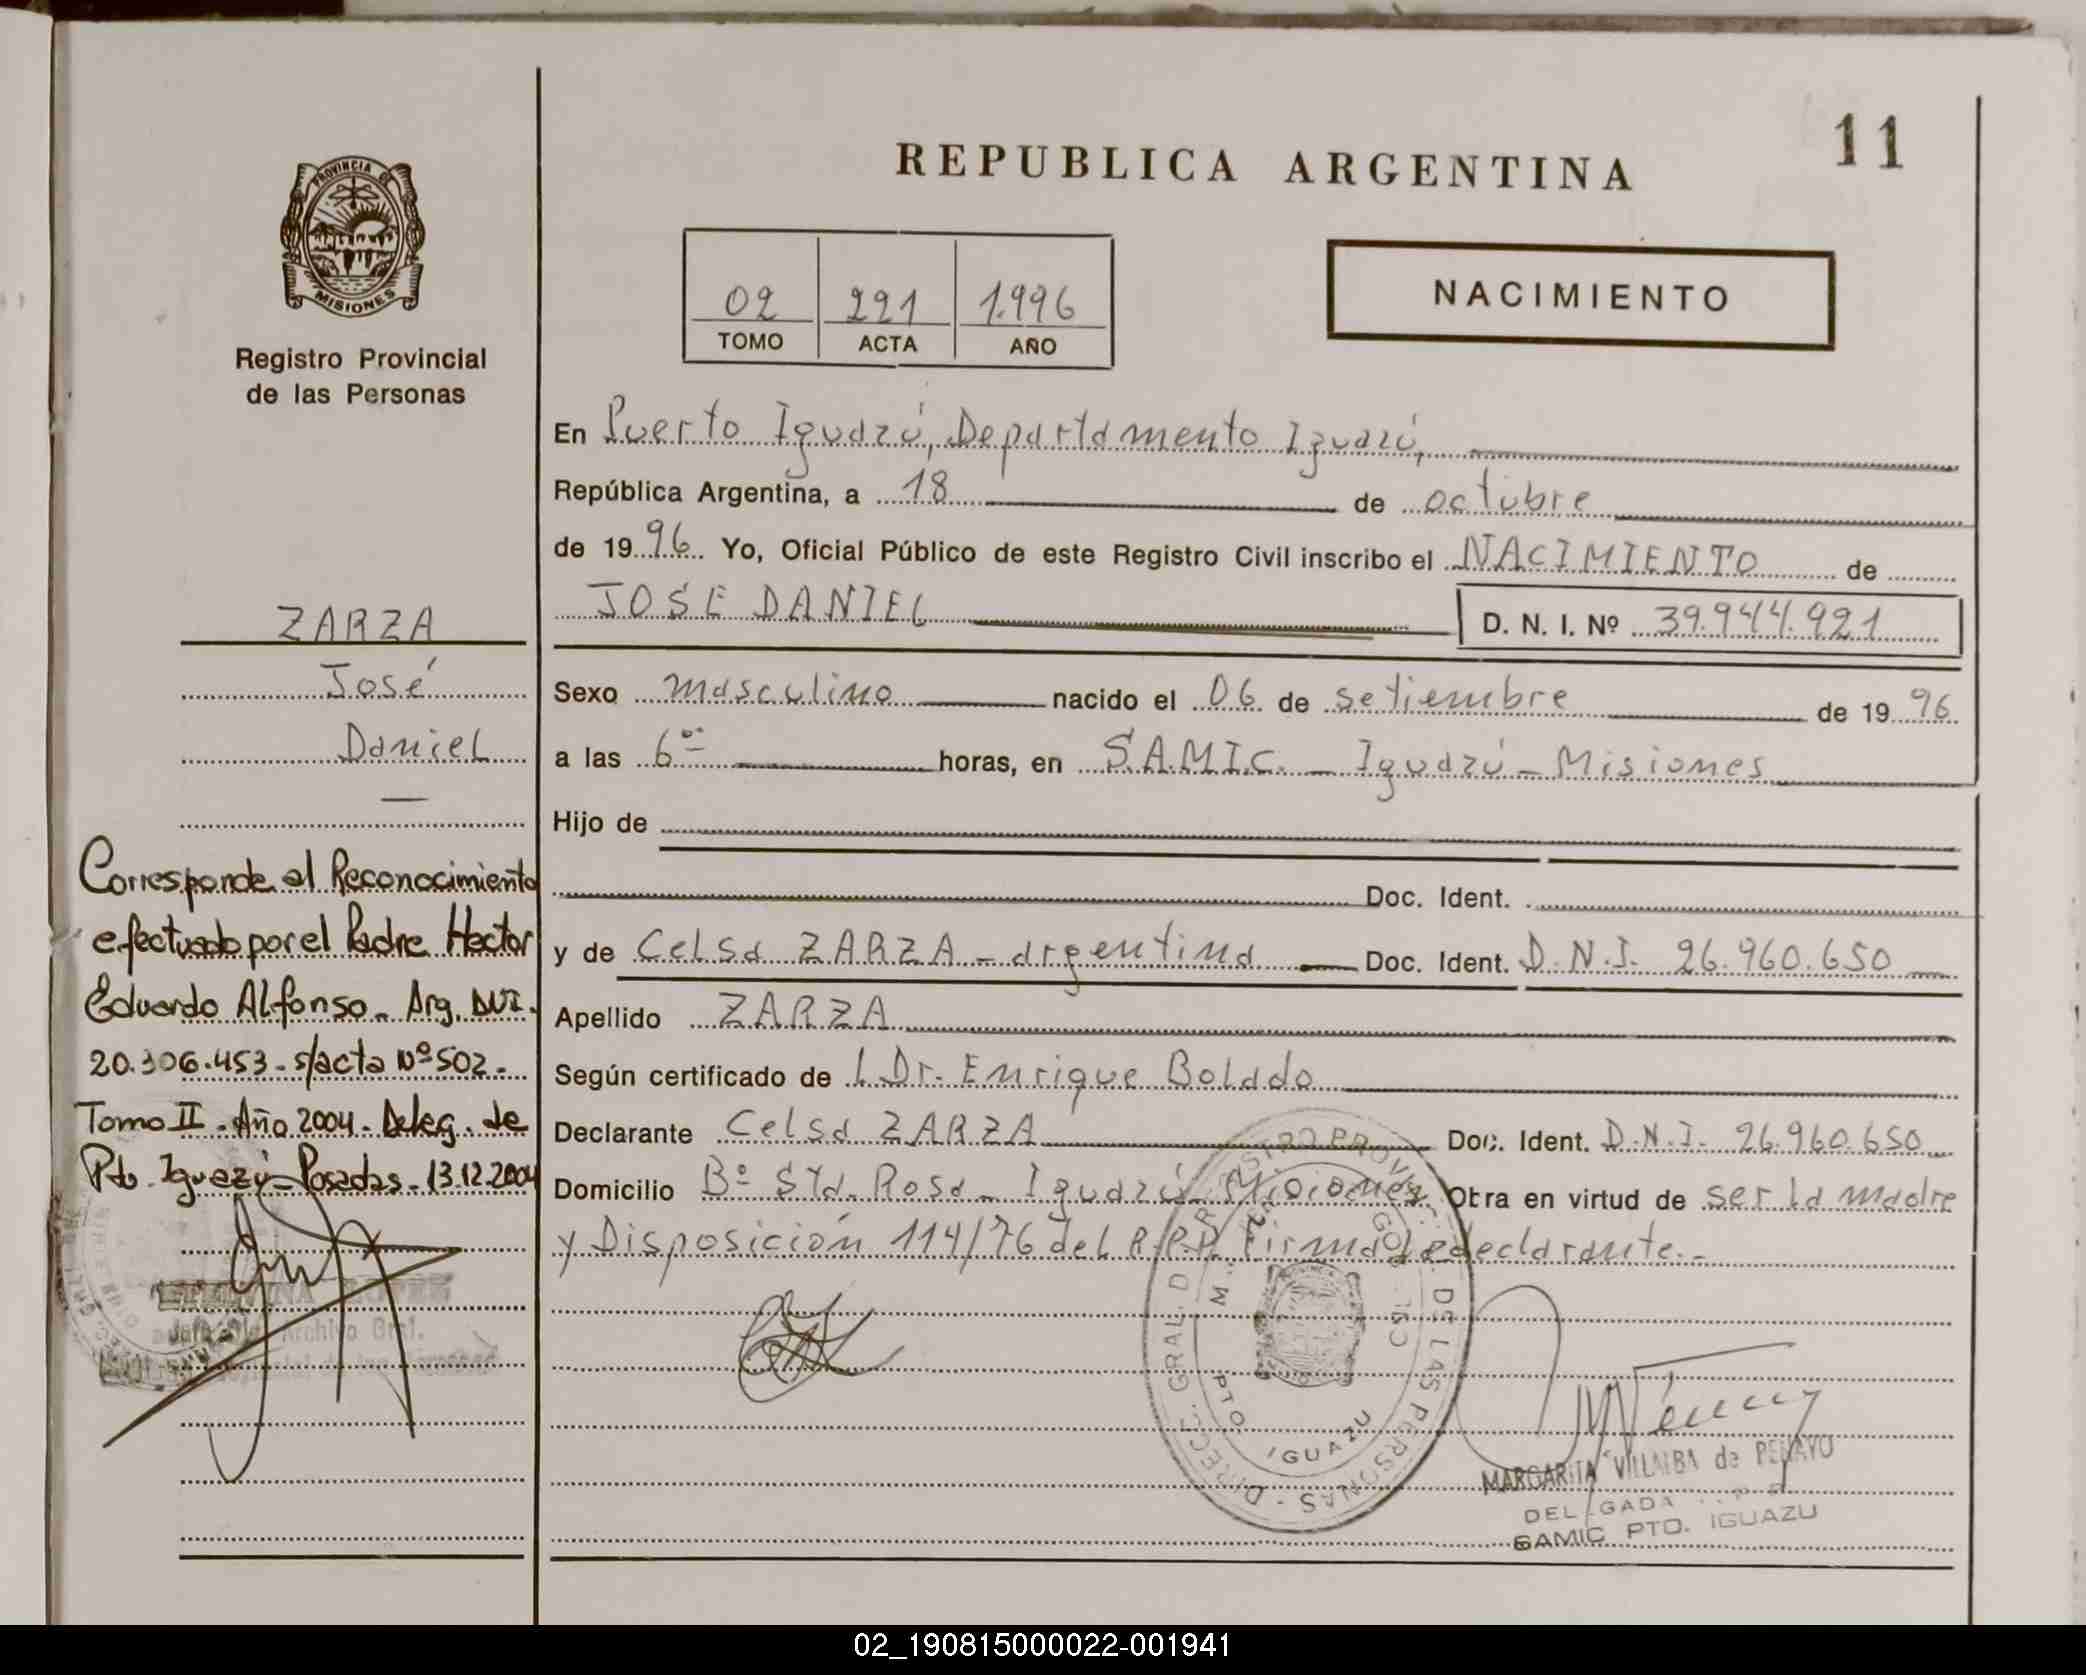 11
REPUBLICA ARGENTINA
PROVINCIA DE
MISIONES
Registro Provincial
de las Personas
02 221 1.996
TOMO ACTA AÑO
NACIMIENTO
En Puerto Iguazú, Departamento Iguazú,
República Argentina, a 18 de octubre
de 1996. Yo, Oficial Público de este Registro Civil inscribo el NACIMIENTO de
JOSE DANIEL D. N. I. Nº 39.944.921
Sexo masculino nacido el 06 de setiembre de 1996
a las 6 horas, en S.A.M.I.C. - Iguazú - Misiones
Hijo de
Doc. Ident.
y de Celsa ZARZA - argentina Doc. Ident. D.N.I. 26.960.650
Apellido ZARZA
Según certificado de Dr. Enrique Bolado
Declarante Celsa ZARZA Doc. Ident. D.N.I. 26.960.650
Domicilio Bº Sta. Rosa - Iguazú - Misiones. Obra en virtud de ser la madre
y Disposición 114/76 del R.P.P. Firma la declarante.-
ZARZA
José
Daniel
Corresponde al Reconocimiento
efectuado por el Padre Hector
Eduardo Alfonso - Arg. DNI.
20.306.453 - s/acta Nº 502 -
Tomo II - Año 2004 - Deleg. de
Pto. Iguazú - Posadas - 13.12.2004
Archivo Gral.
DIREC. GRAL. DE LAS PERSONAS
PTO. IGUAZU
MARGARITA VILLALBA de PENAYO
SAMIC PTO. IGUAZU
02_190815000022-001941